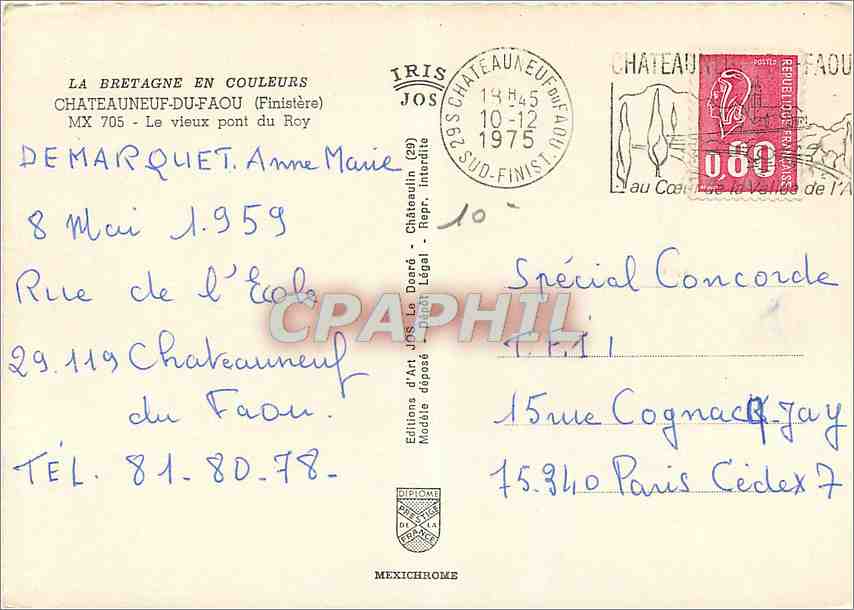 LA BRETAGNE EN COULEURS
CHATEAUNEUF-DU-FAOU (Finistère)
MX 705 - Le vieux pont du Roy
DEMARQUET. Anne Marie
8 Mai 1.959
Rue de l'Ecole
29.119 Chateauneuf
du Faou.
TÉL. 81-80-78-
IRIS
JOS
Editions d'Art JOS Le Doaré - Châteaulin (29)
Modèle déposé - Dépôt Légal - Repr. interdite
DIPLOME
PRESTIGE
DE LA
FRANCE
MEXICHROME
29S CHATEAUNEUF DU FAOU
18H45
10-12
1975
SUD-FINIST.
CHATEAUNEUF-FAOU
au Cœur de la Vallée de l'A
POSTES
REPUBLIQUE FRANÇAISE
0,80
10-
Spécial Concorde
T.F.1
15 rue Cognacq-Jay
75.940 Paris Cédex 7
CPAPHIL